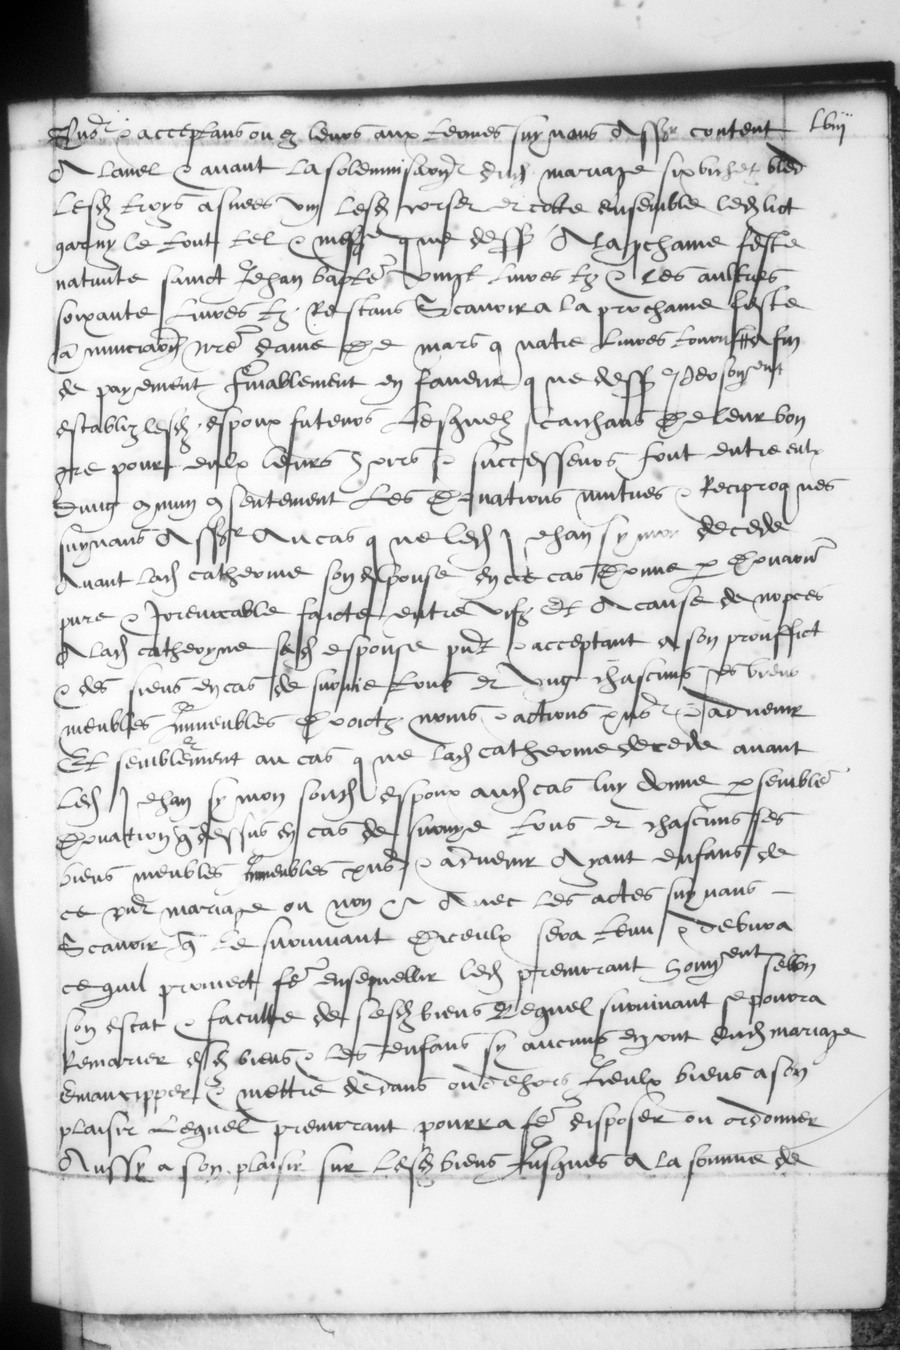 acceptans ou es leurs aux termes suyvans Assr content lviij
A lavel & avant la solemnisaon dud mariage six bichez bled
Lesd troys asnees vin lesd et cotte ensemble led lict
garny le tout tel & que dess A la pchaine feste
nativite sainct Jehan baptr vingt livres tz & les aultres
soixante livres tz restans Scavoir a la prochaine feste
annunciaon nre dame de mars quatre livres fin
de payement finablement en faveur que dess
establiz lesd espoux futurs lesquelz scaichans de leur bon
gre pour eulx leurs hoirs & successeurs font entre eulx
dung commun consentement les donations mutues & reciproques
suyvans Assr Au cas que led Jehan symon decede
Avant lad catherine son espouse en ce cas donne p donaon
pure & irrevocable faicte entre vifz et A cause de nopces
A lad catheryne sad espouse pnt & acceptant A son prouffict
& des siens en cas de survie tous et ung chascuns ses biens
meubles immeubles droictz noms & actions pns & advenir
Et semblement au cas que lad catherine decede avant
led Jehan symon sond espoux aud cas luy donne p semble
donation q dessus en cas de survye tous et chascuns ses
biens meubles immeubles pns & advenir Ayant enfans de
ce pnt mariage ou non & Avec les actes suyvans
Scavoir q le survivant diceulx sera tenu & debvra
ce quil promect fe ensepvellir led premorant selon
son estat & faculte de sesd biens Lequel survivant se pourra
Remarier esd biens & les enfans sy aucuns en ont dud mariage
Emancipper & mettre dedans ou dehors diceulx biens a son
plaisir Lequel premorant pourra fe disposer ou ordonner
Aussy a son plaisir sur lesd biens Jusques A la somme de